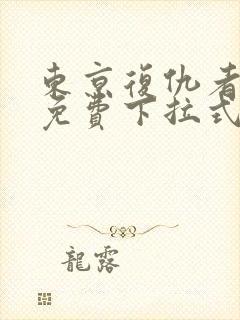 東京復仇者
免費下拉式
龍露